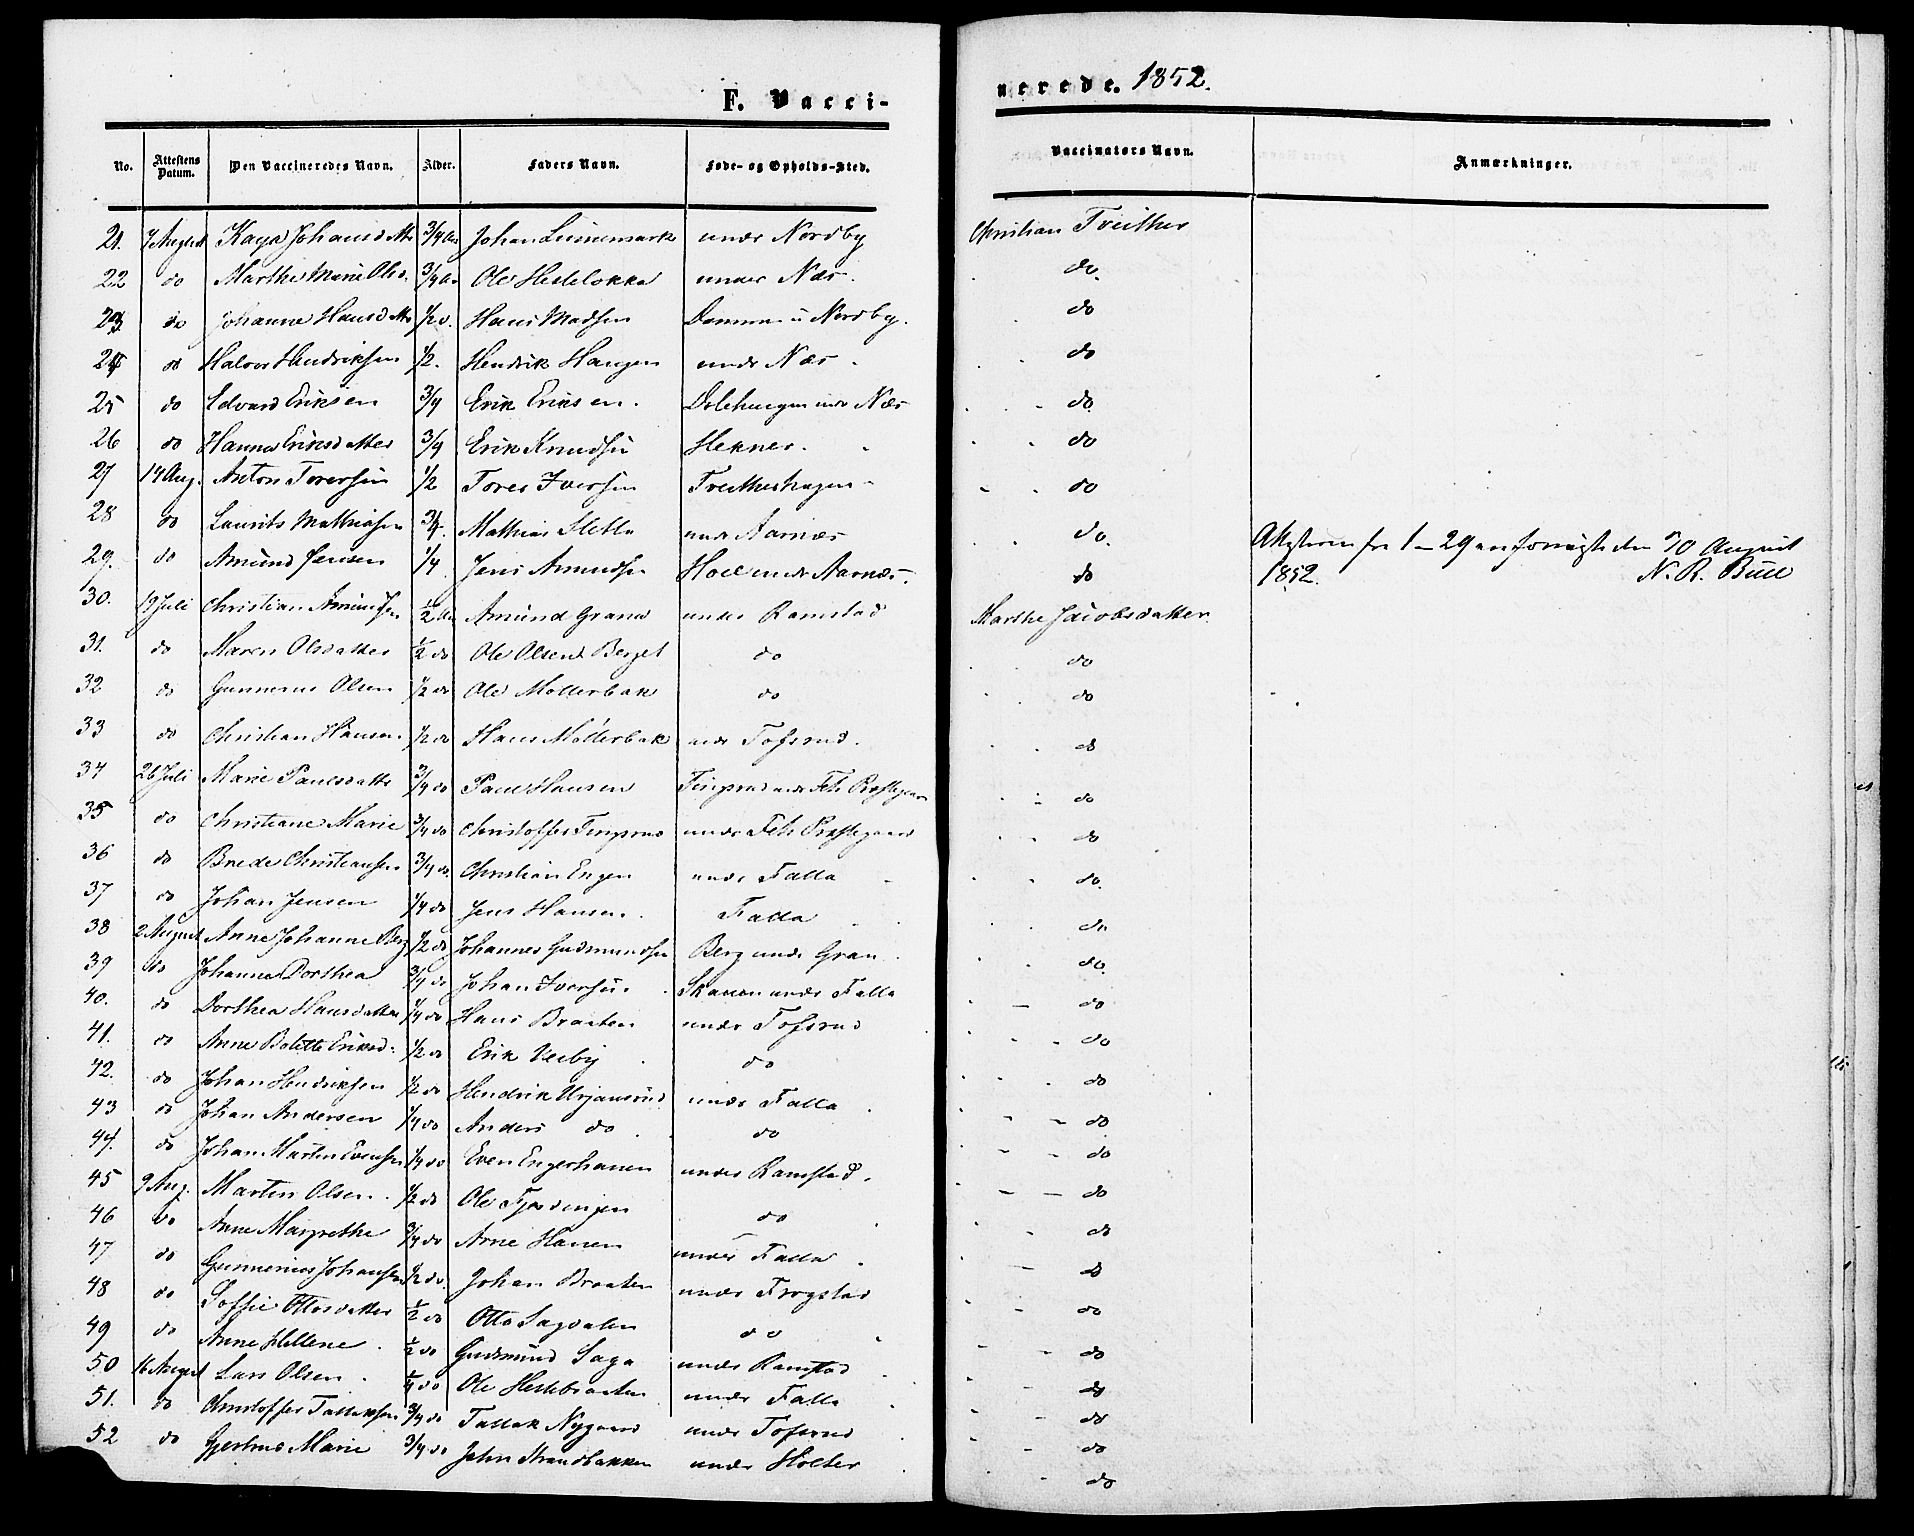 F. Vacci-
nerede. 1852.
No. Attestens Datum. Den Vaccineredes Navn. Alder. Faders Navn. Føde- og Opholds-Sted. Vaccinators Navn. Anmærkninger.
21. 7 August Kaya Johansdatter 3/4 Johan under Nordby Christian Treither
22 do Marthe Marie Olsd. 3/4 Ole Hesteløkka under Næs. do.
23 do Johanne Hansdatter 1/2 Hans Madsen u Nordby. do
24 do Halvor Hendriksen 1/2. Hendrik Haugen under Næs. do
25 do Edvard Eriksen 3/4 Erik Eriksen. under Næs do
26 do Hanna Eriksdatter 3/4 Erik Knudsen Hexner. do
27 14 Aug. Anton Toresen 1/2 Tores Iversen do
28 do Laurits Mathisen 3/4. Mathias Sletta under Aarnæs do.
29. do Amund Jensen 1/4. Jens Amundsen under Aarnæs. do
fra 1-29 den 30 August
1852. N. R. Bull
30. 19 Juli Christian Amundsen 1/2 Amund Grand under Ramstad Marthe Jacobsdatter
31. do Maren Olsdatter 1/2 do Ole Olsen Berget do do
32 do Gunnerus Olsen 1/2 do Ole Møllerbak do do
33 do Christian Hansen. 1/2 do Hans Møllerbak under Tofsrud. do
34 26 Juli Marie Paulsdatter 3/4 do Paul Hansen Tingsrud under Feth Præstegaard do
35 do Christiane Marie 3/4 do Christoffer Tingsrud under Feth Præstegaard do
36 do Brede Christiansen 3/4 do. Christian Engen under Falla do.
37 do Johan Jensen 1/4 do Jens Hansen. Falla do
38 2 August Anne Johanne Berg 1/2 do Johannes Gudmundsen Berg under Gran. do.
39 do Johanne Dorthea 3/4 do Johan Iversen. under Falla do
40. do Dorthea Hansdatter 1/4 do Hans Braaten under Tofsrud do
41. do Anne Bolette Eriksd. 1/2 do Erik do do
42. do Johan Hendriksen 1/2 do Hendrik Urjansrud under Falla do
43 do Johan Andersen 1/4 do Anders do do do
44. do Johan Martin Evensen 1/4 do Even Engerhauen under Ramstad. do
45 9 Aug. Martin Olsen. 1/2 do Ole do do
46 do Anne Margrethe 3/4 do Arne Hauen under Falla. do
47 do Gunnerius Johansen 1/2 do. Johan Braaten under Frogstad do
48 do Soffie Ottosdatter 1/2 do Otto Sagdalen do do
49 do Anne Hellene. 1/2 do Gudmund Saga under Ramstad do
50 16 August Lars Olsen. 1/4 do Ole Hestebraaten under Falla do
51. do Christoffer Tallaksen 3/4 do Tallak Nygaard under Tofsrud do
52 do Gjertrud Marie 3/4 do John Strandbakken under Holter do